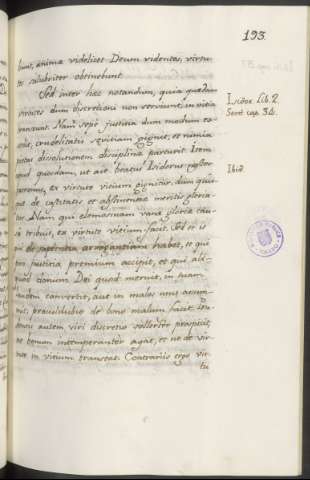 193.
bunt, animæ videlicet Deum videntes, virtu-
tes salubriter obtinebunt.
Sed inter hæc notandum, quia quædam
virtutes dum discretioni non serviunt in vitia
transeunt. Nam sæpe justitia dum modum ex-
cedit, crudelitatis sævitiam gignit, et nimia
pietas dissolutionem disciplinæ parturit. Item
quod quædam, ut ait beatus Isidorus
ex virtute vitium gignitur, dum quis-
que de castitatis et abstinentiæ meritis gloria-
tur. Nam qui elemosinam vanæ gloriæ cau-
sa tribuit, ex virtute vitium facit. Sed et is
qui de sapientia arrogantiam habet, et qui
pro justitia premium accipit, et qui ali-
quod donum Dei quod meruit, in suam
laudem convertit, aut in malos usus assu-
mit, procul dubio de bono malum facit.
autem viri discretio sollerter prospicit,
ne bonum intemperanter agat, et ne de vir-
tute in vitium transeat. Contrariis ergo vir-
tu
Isidor. Lib. 2.
Sent. cap. 34.
Ibid.